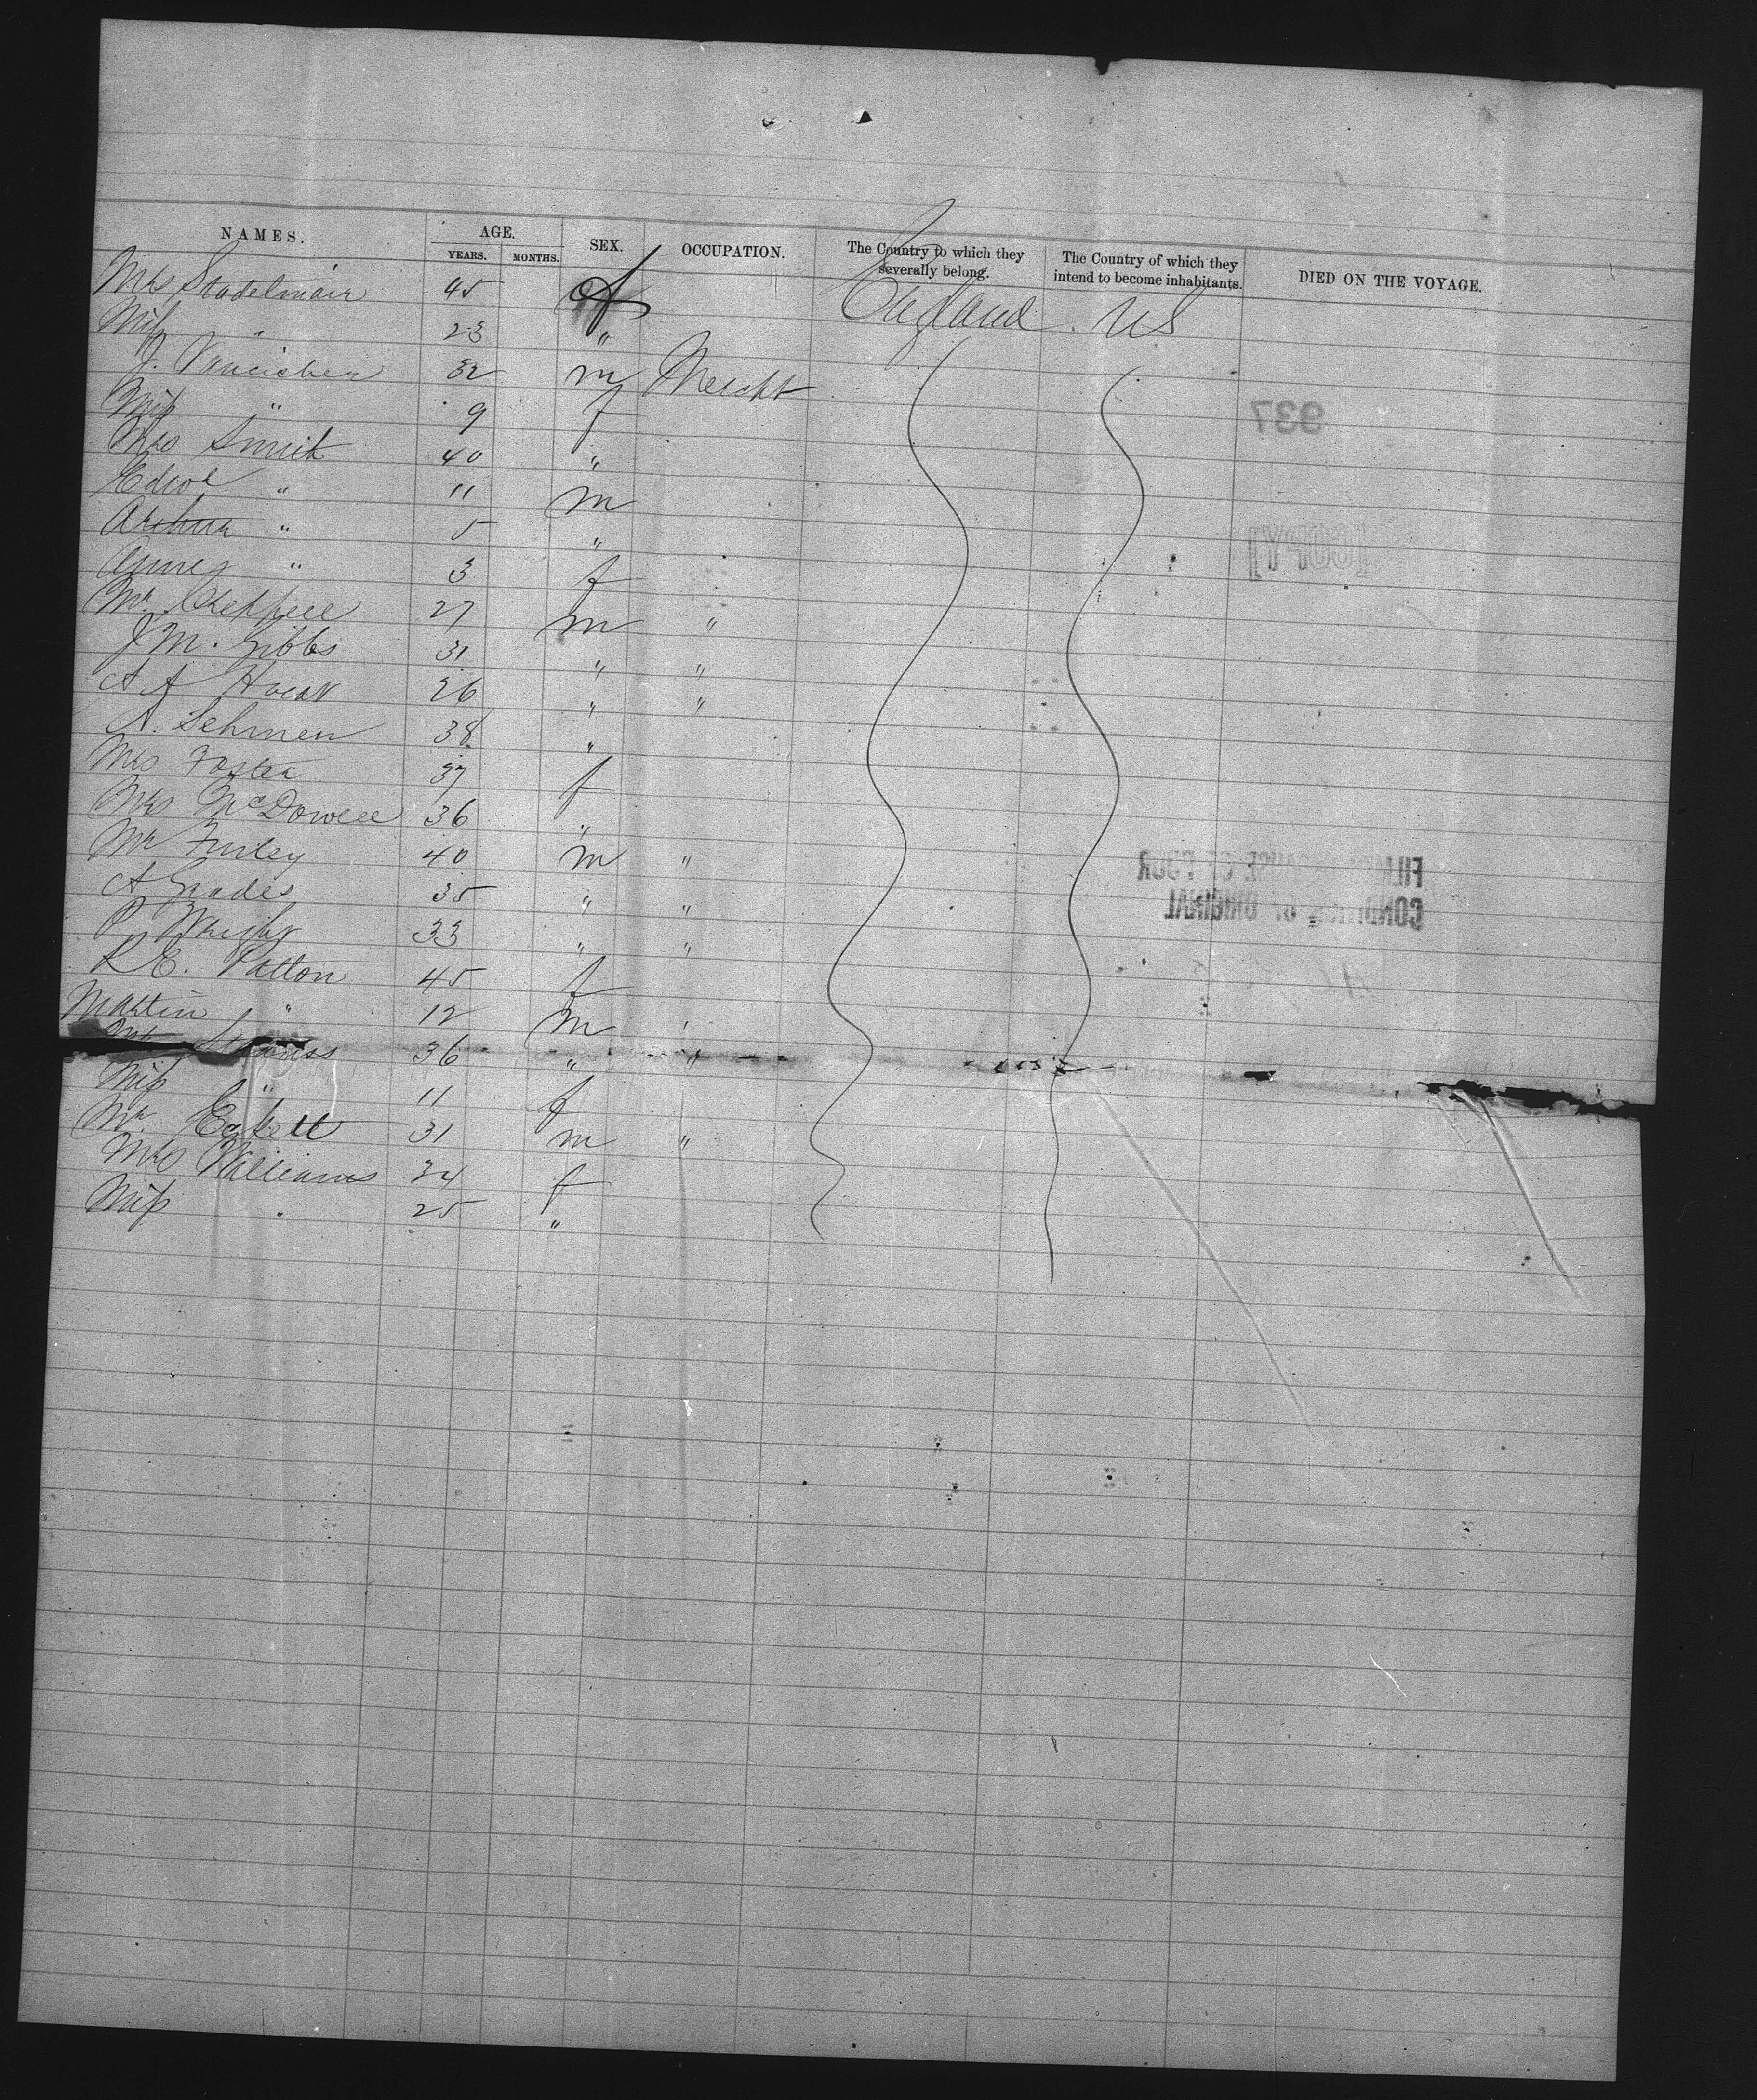 NAMES. AGE. YEARS. MONTHS. SEX. OCCUPATION. The Country to which they severally belong. The Country of which they intend to become inhabitants. DIED ON THE VOYAGE.
Mrs Stadelmair 45 f England US
Miss " 23 "
J. 32 m Mercht
Miss " 9 f
Mrs Smith 40 "
Edwd " 11 m
Arthur " 5 "
Agnes " 3 f
Mr. Cheppell 27 m "
J M. Gibbs 31 " "
A A 26 " "
A. Lehmen 38 "
Mrs Foster 37 f
Mrs McDowell 36 "
Mr Furley 40 m "
A 35 " "
P Wright 33 " "
R E. Patton 45 f
Martin " 12 m
Strauss 36 " "
Miss " 11 f
Mr. 31 m "
Mrs Williams 34 f
Miss " 25 "
937
[COPY]
FILMED BECAUSE OF POOR
CONDITION OF ORIGINAL